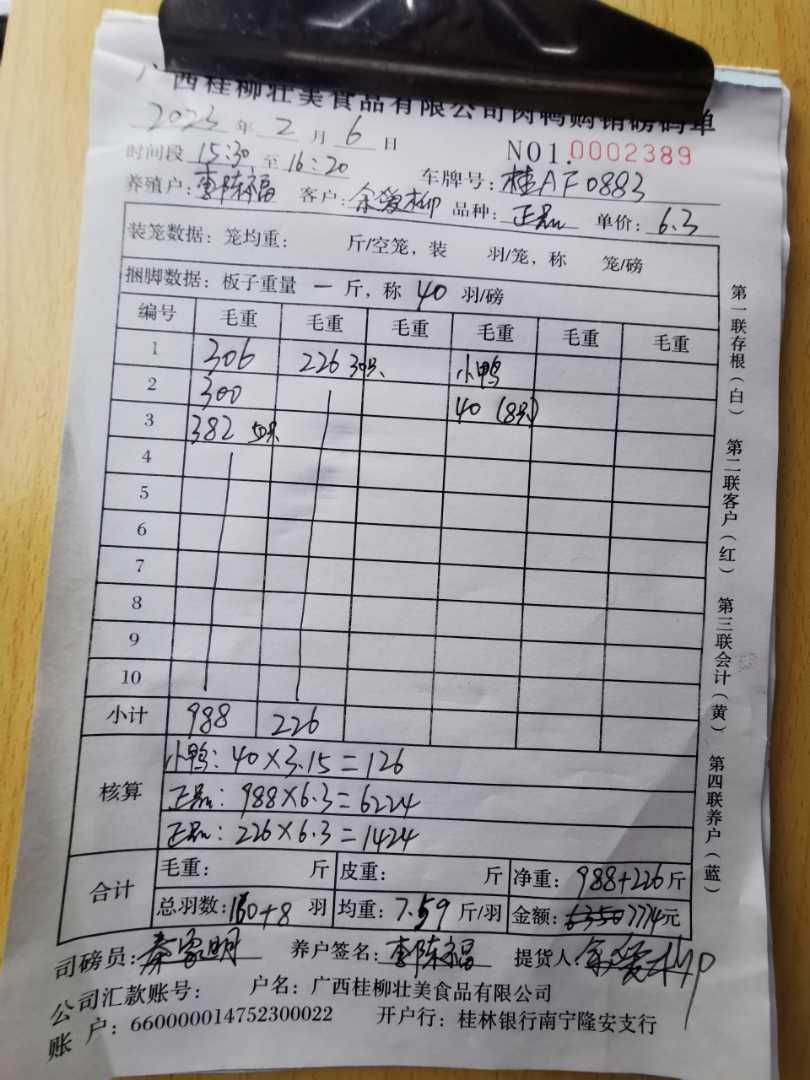 广西桂柳壮美食品有限公司肉鸭购销磅码单
2023年2月6日
NO1.0002389
时间段 15:30 至 16:20
车牌号:桂AF0883
养殖户:李陈福 客户:余爱柳 品种:正品 单价:6.3
装笼数据:笼均重: 斤/空笼,装 羽/笼,称 笼/磅
捆脚数据:板子重量 一 斤,称 40 羽/磅
编号 毛重 毛重 毛重 毛重 毛重 毛重
1 306 226 30只 小鸭
2 300 40 (8只)
3 382 50只
4
5
6
7
8
9
10
小计 988 226
核算
小鸭:40×3.15=126
正品:988×6.3=6224
正品:226×6.3=1424
合计
毛重: 斤 皮重: 斤 净重:988+226斤
总羽数:160+8 羽 均重:7.59 斤/羽 金额:6350 7774元
司磅员:秦家明 养户签名:李陈福 提货人 余爱柳
公司汇款账号: 户名:广西桂柳壮美食品有限公司
账户:660000014752300022 开户行:桂林银行南宁隆安支行
第一联存根(白)
第二联客户(红)
第三联会计(黄)
第四联养户(蓝)